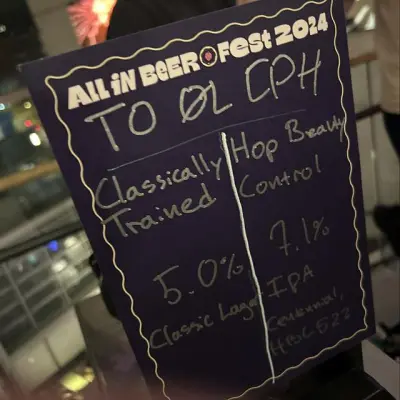 ALL iN BEER FEST 2024
TO ØL CPH
Classically
Trained
5.0%
Classic Lager
Hop Beauty
Control
7.1%
IPA
Centennial,
HBC 522